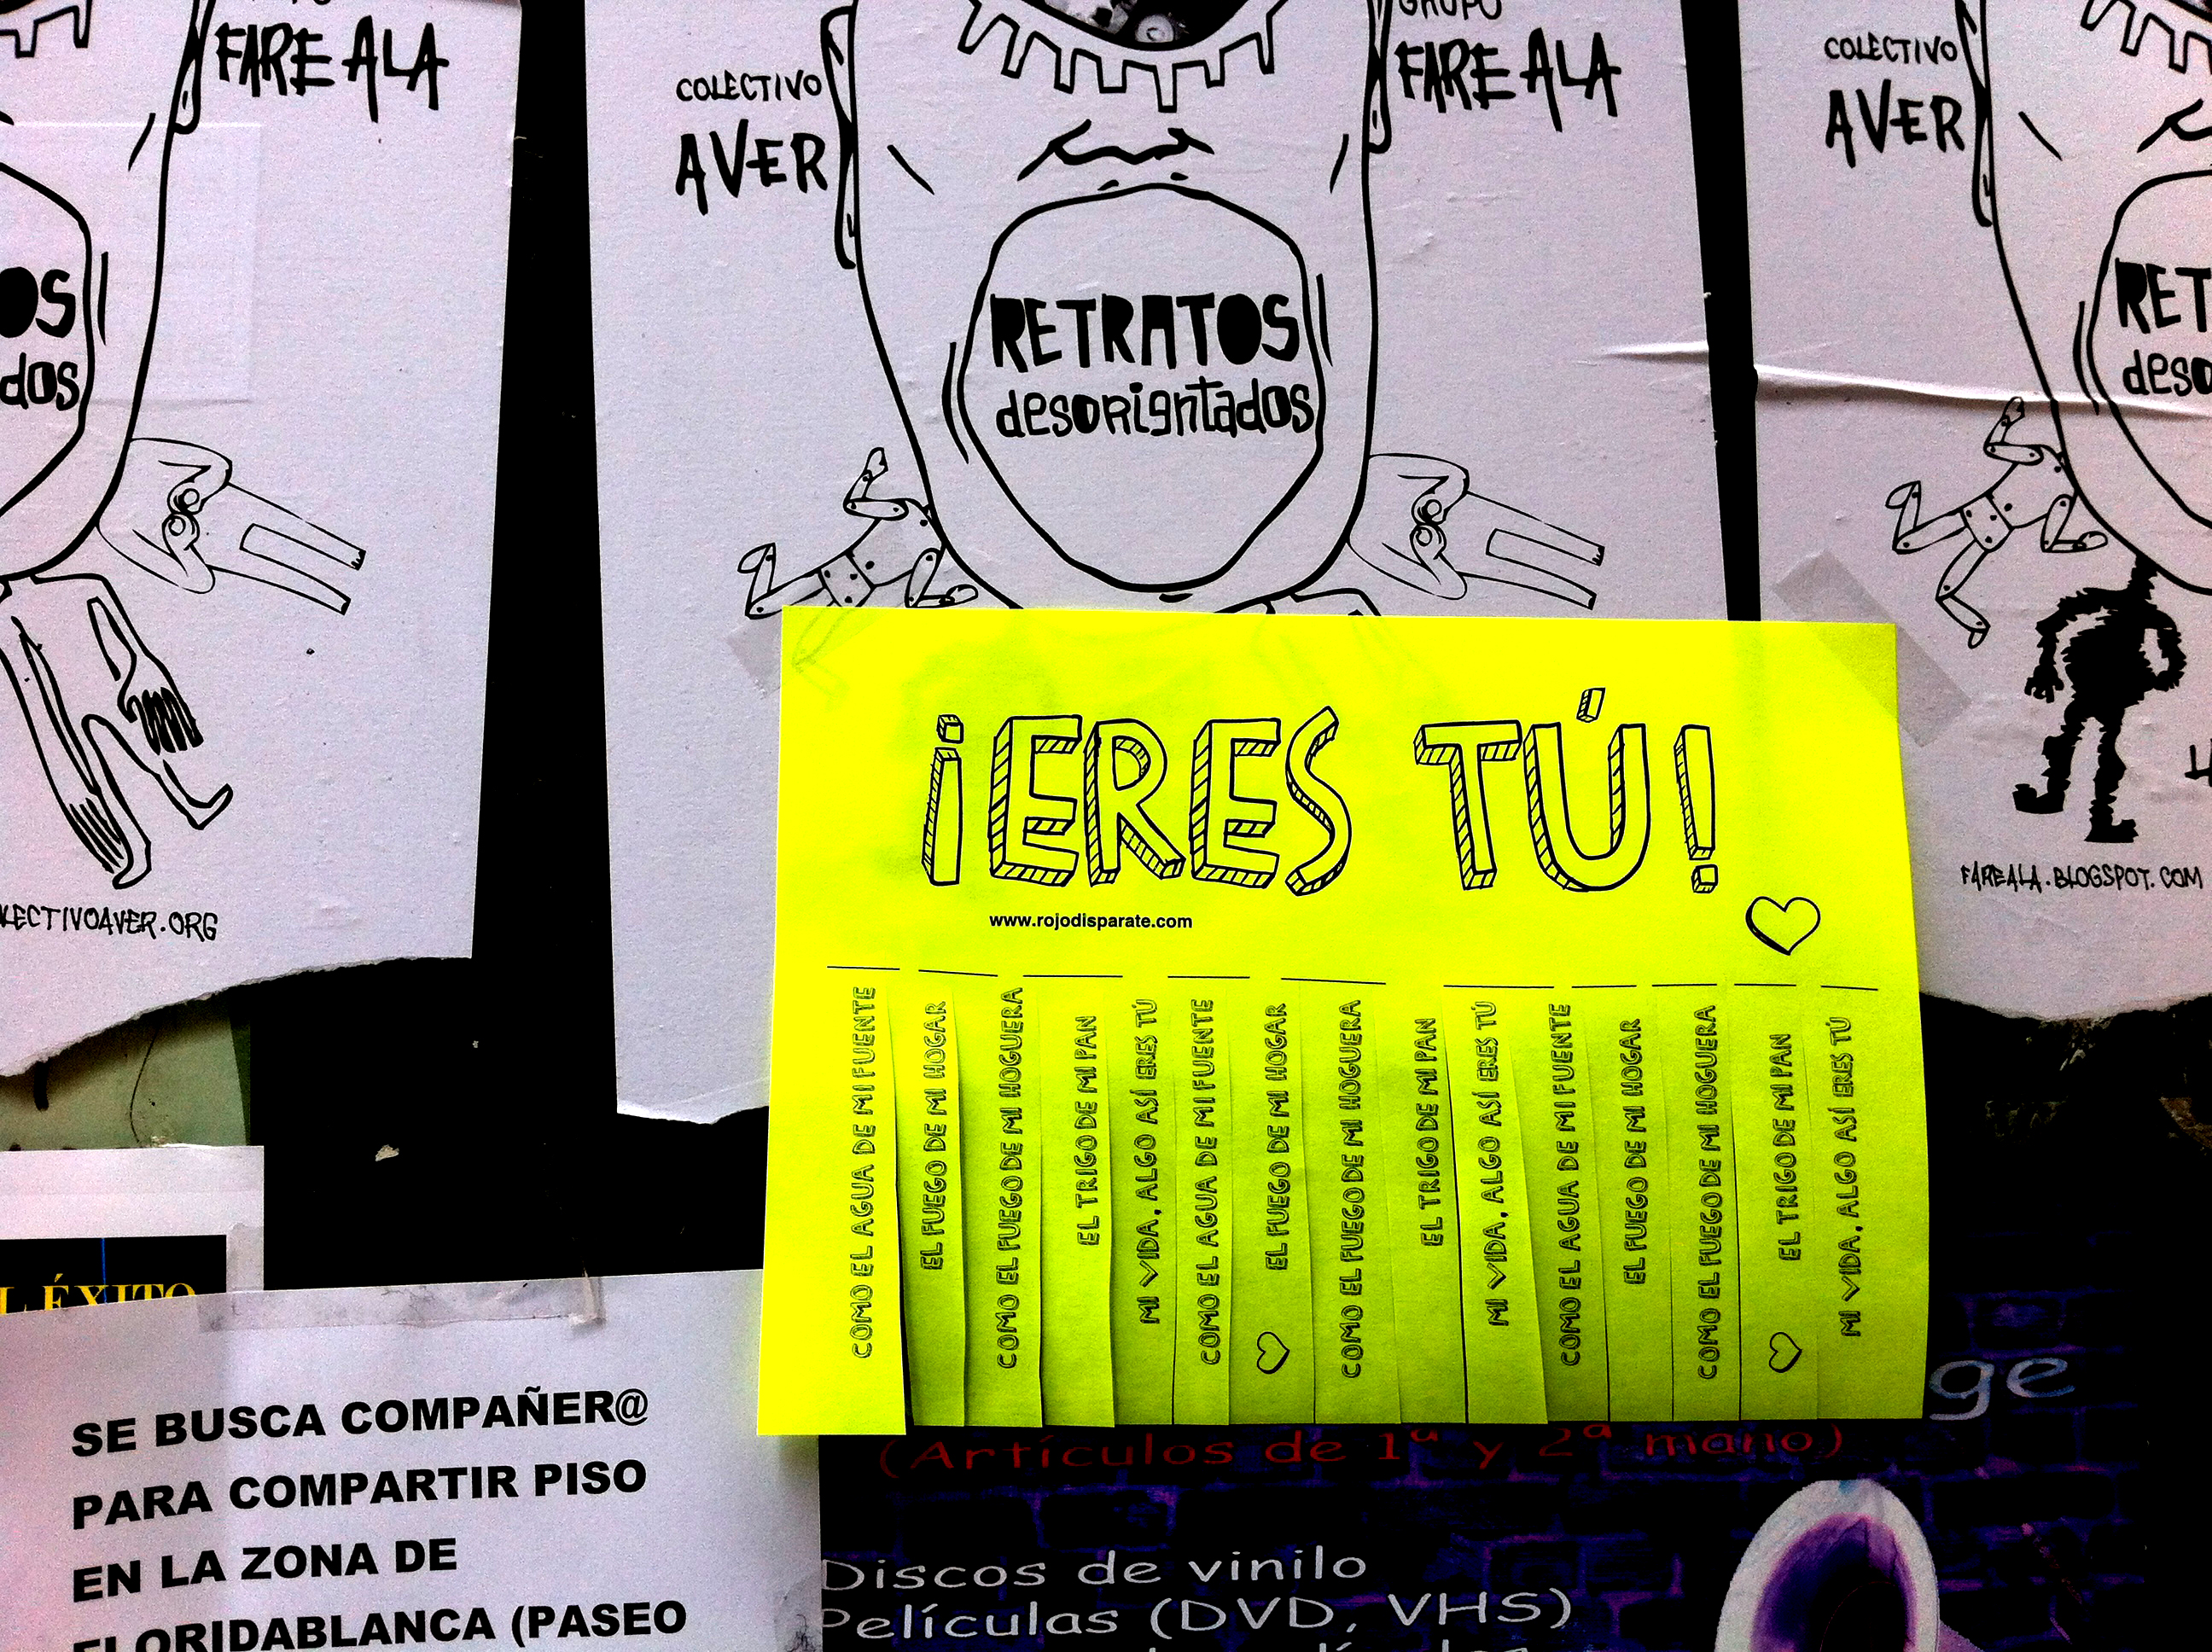 FARE ALA
OS
dos
LECTIVOAVER.ORG
COLECTIVO
AVER
GRUPO
FARE ALA
RETRATOS
desorientados
COLECTIVO
AVER
RET
deso
FAREALA.BLOGSPOT.COM
¡ERES TÚ!
www.rojodisparate.com
COMO EL AGUA DE MI FUENTE
EL FUEGO DE MI HOGAR
COMO EL FUEGO DE MI HOGUERA
EL TRIGO DE MI PAN
MI VIDA, ALGO ASÍ ERES TÚ
COMO EL AGUA DE MI FUENTE
EL FUEGO DE MI HOGAR
COMO EL FUEGO DE MI HOGUERA
EL TRIGO DE MI PAN
MI VIDA, ALGO ASÍ ERES TÚ
COMO EL AGUA DE MI FUENTE
EL FUEGO DE MI HOGAR
COMO EL FUEGO DE MI HOGUERA
EL TRIGO DE MI PAN
MI VIDA, ALGO ASÍ ERES TÚ
L ÉXITO
SE BUSCA COMPAÑER@
PARA COMPARTIR PISO
EN LA ZONA DE
FLORIDABLANCA (PASEO
ge
(Artículos de 1ª y 2ª mano)
Discos de vinilo
Películas (DVD, VHS)